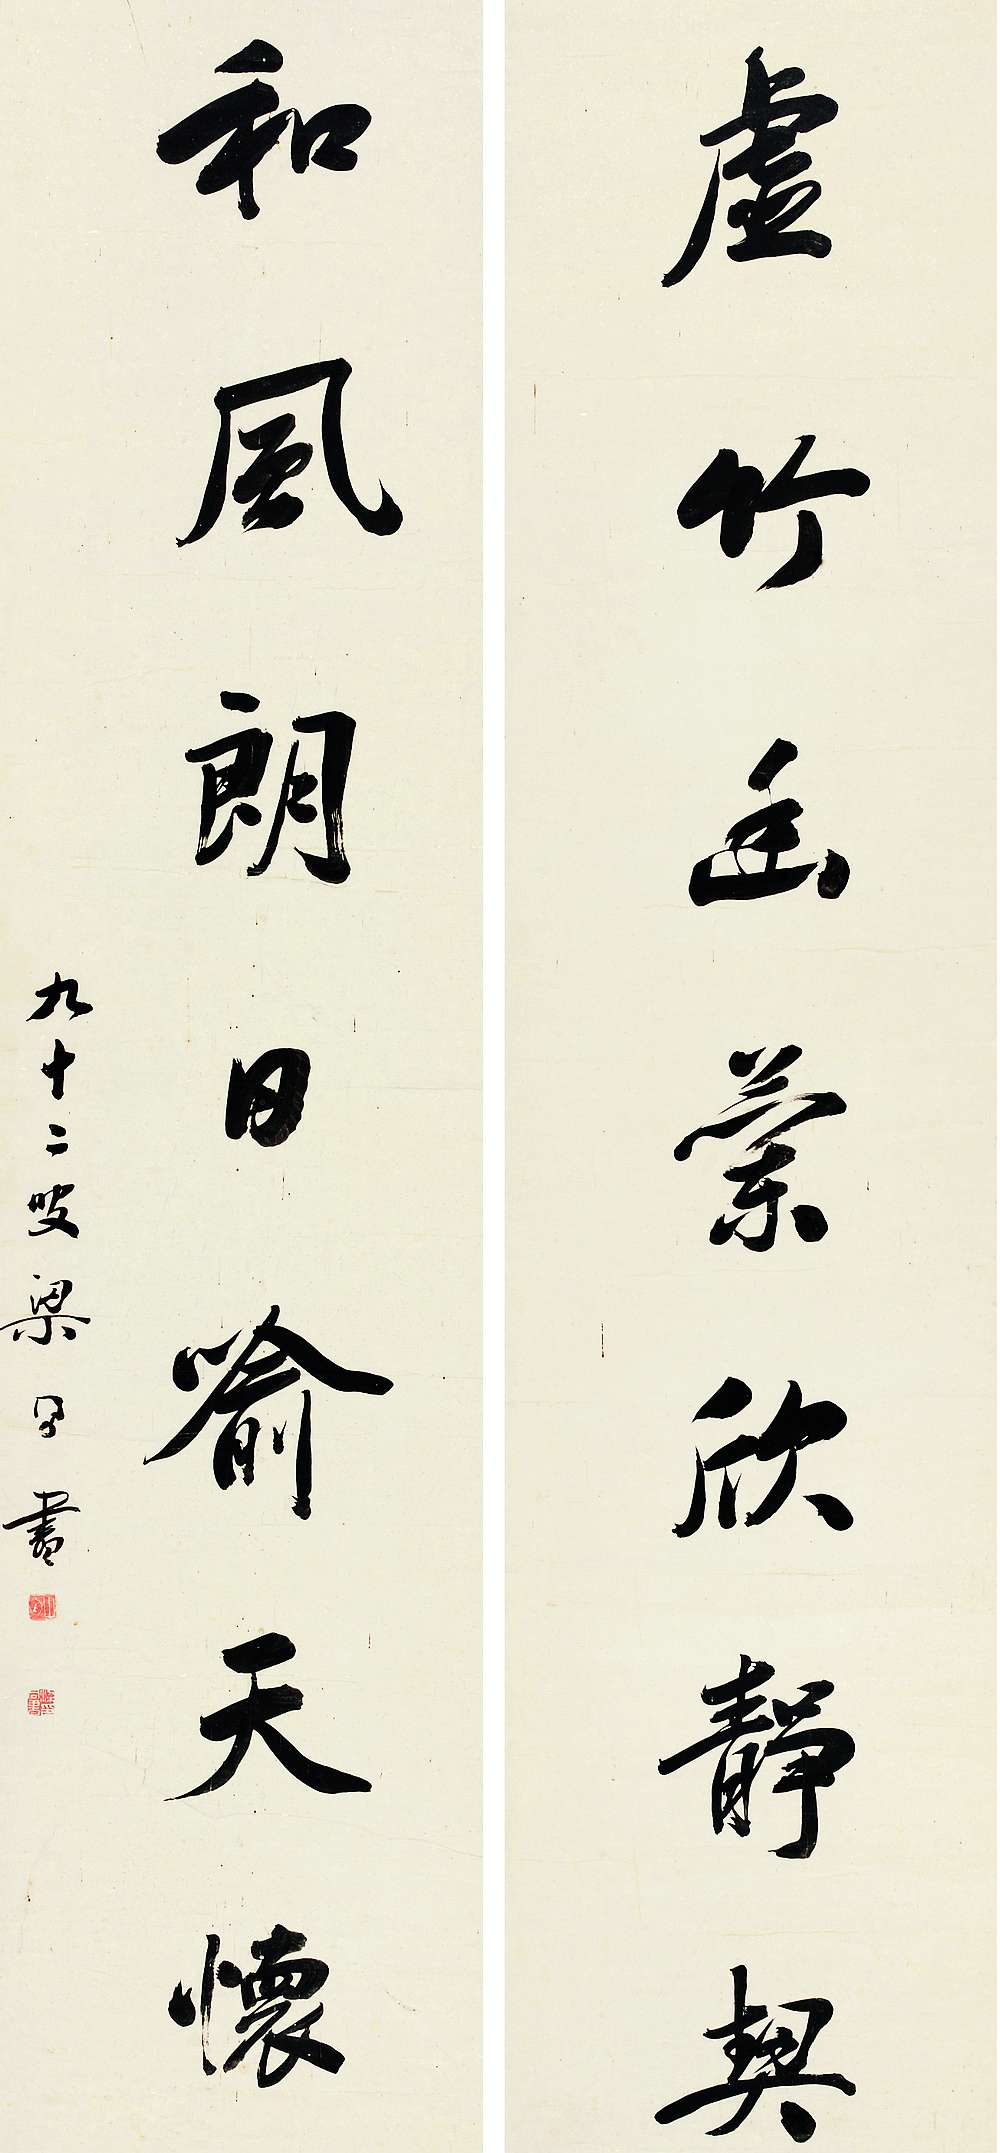 虛竹幽蘭欣靜契
和風朗日喻天懷
九十二叟梁同書